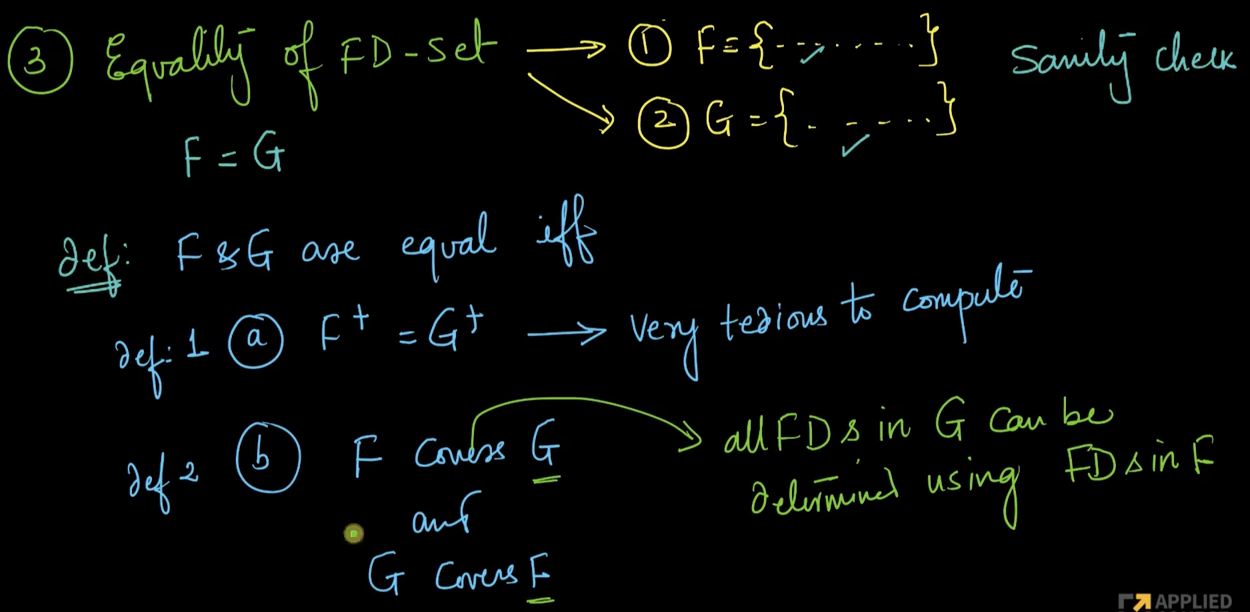 ③ Equality of FD-Set → ① F = {- - - . . . . .} Sanity check
② G = {. - - . . . .}
F = G
def: F & G are equal iff
def: 1 ⓐ F⁺ = G⁺ → Very tedious to compute
def 2 ⓑ F covers G → all FDs in G can be
determined using FDs in F
and
G covers F
APPLIED